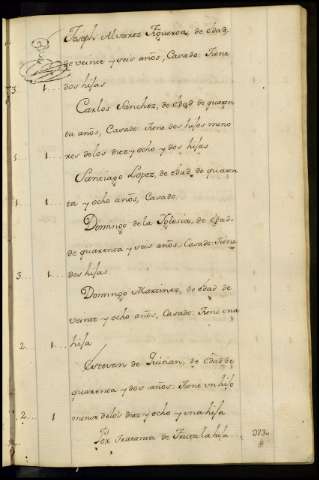 Joseph Alvarez Figueroa, de edad
de veinte y seis años, Casado. Tiene
3. 1... dos hijas
Carlos Sanchez, de edad de quaren
ta años, Casado. Tiene dos hijos meno
5 1... res de los diez y ocho y dos hijas
Santiago Lopez, de edad de quaren
1 1... ta y ocho años, Casado.
Domingo de la Yglesia, de edad
de quarenta y seis años, Casado. Tiene
3. 1... dos hijas
Domingo Martinez, de edad de
veinte y ocho años, Casado. Tiene una
2. 1... hija
Estevan de de edad de
quarenta y dos años. Tiene un hijo
2... 1 menor de los diez y ocho y una hija
de la hija 373..